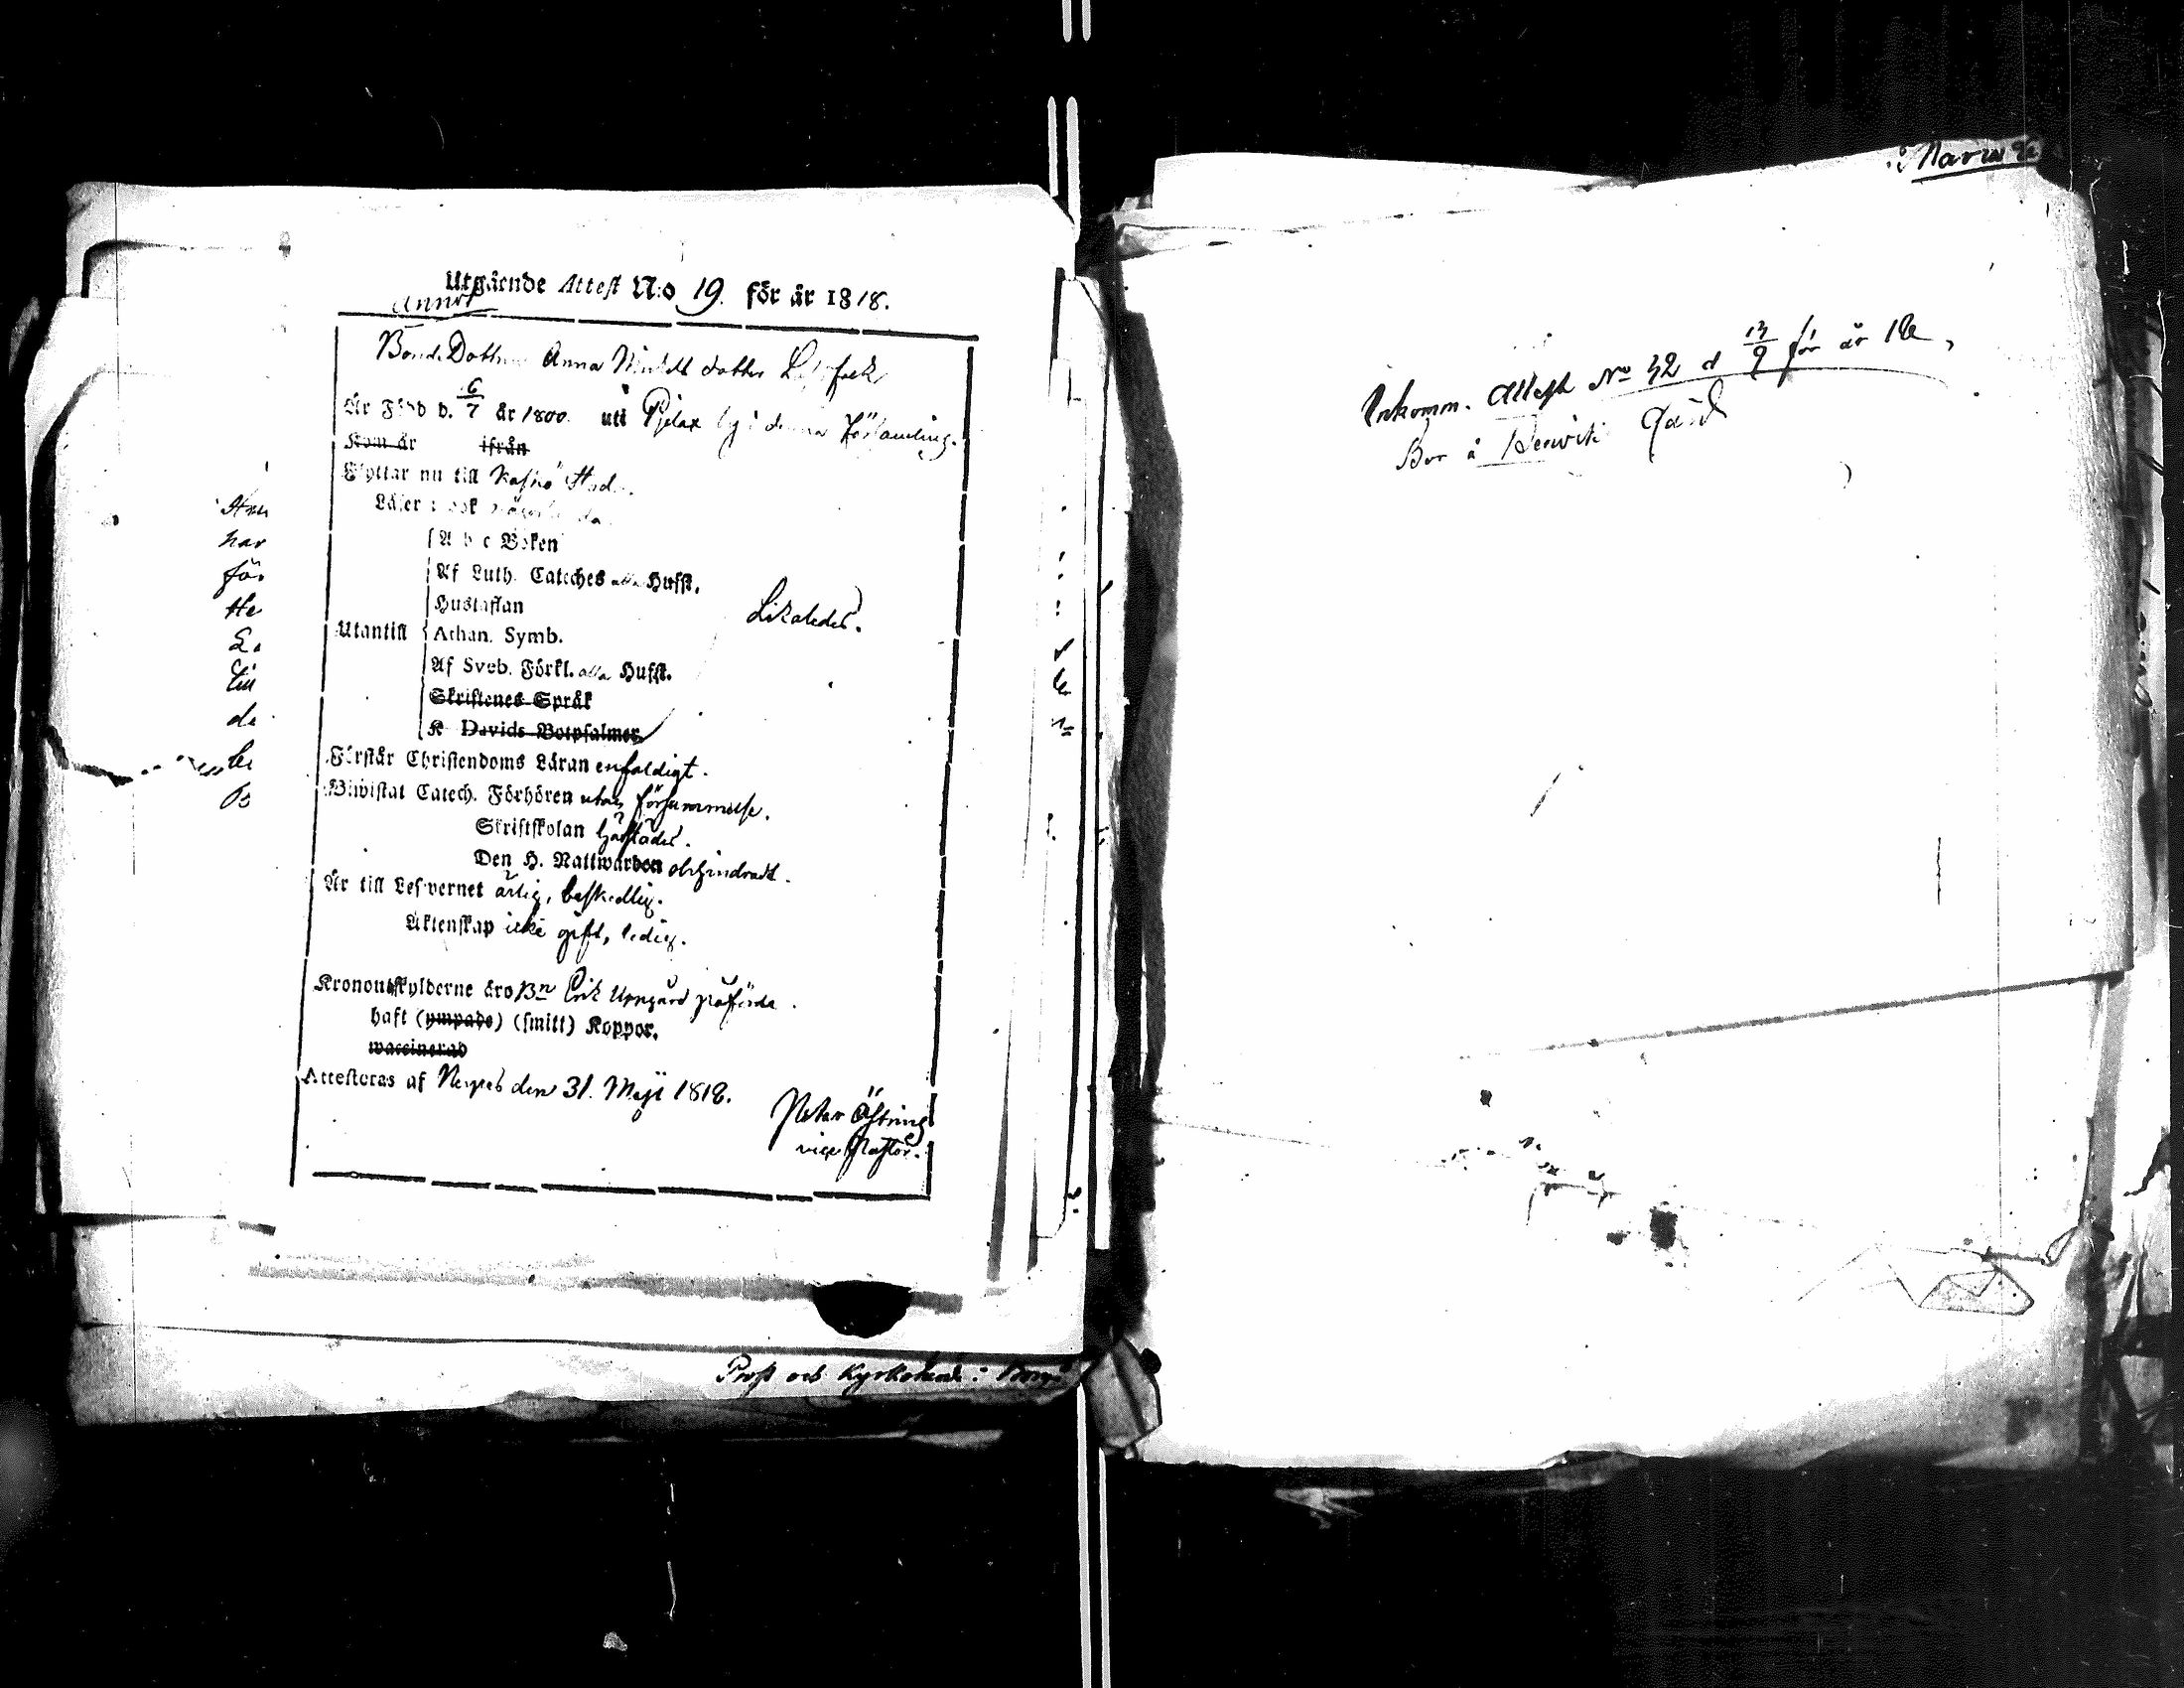 Utgående Attest N:o 19. för år 1818.
Anna
Bond Dottren Anna Michels dotter
Är Född d. 6/7 år 1800. uti Pjelax by i denna Församling.
Kom år ifrån
Flyttar nu till Kaskö Stad.
Läser i bok
A b c Boken
Af Luth. Cateches alla Hufst.
Hustaflan
Likaledes.
Utantill
Athan. Symb.
Af Sveb. Förkl. alla Hufst.
Skriftenes Språk
K Davids Botpsalmer
Förstår Christendoms Läran enfaldigt.
Biwistat Catech. Förhören utan försummelse.
Skriftskolan härstädes.
Den H. Nattwarden obehindradt.
Är till Lefwernet ärlig, beskedlig.
Äktenskap icke gift, ledig.
Kronoutskylderne äro Bn Erik Uppgård påförda.
haft (ympade) (smitt) Koppor.
waccinerad
Attesteras af Nerpes den 31. Maji 1818.
Peter Östring
vice Pastor.
Prost och Kyrkoherde i
har
för
He
till
Maria
Inkomm. Attest No 32 d 13/9 för år 18
Bor å Gård